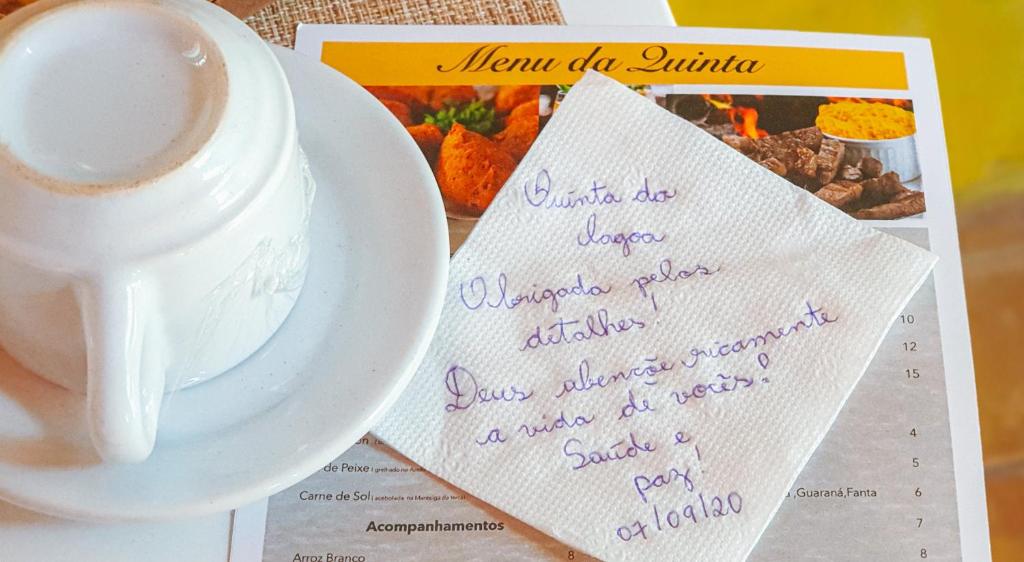 Menu da Quinta
Quinta da
lagoa
Obrigada pelos
detalhes!
Deus abençõe ricamente
a vida de vocês!
Saúde e
paz!
07/09/20
10
12
15
4
de Peixe
5
Carne de Sol
,Guaraná,Fanta 6
Acompanhamentos
7
Arroz Branco 8
8